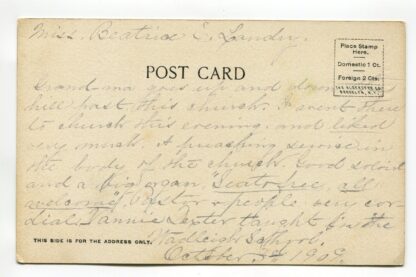 Miss. Beatrice E. Landry.
Place Stamp
Here.
Domestic 1 Ct.
Foreign 2 Cts.
POST CARD
Grandma goes up and down this
hill past this church. I went there
to church this evening and liked
very much. A preaching service in
the body of the church. Good soloist
and a big organ, "Seats free, all
welcome". Pastor & people very cor-
dial. Fannie Lester taught in the
THIS SIDE IS FOR THE ADDRESS ONLY.
Wadleigh School.
October 3d 1909.